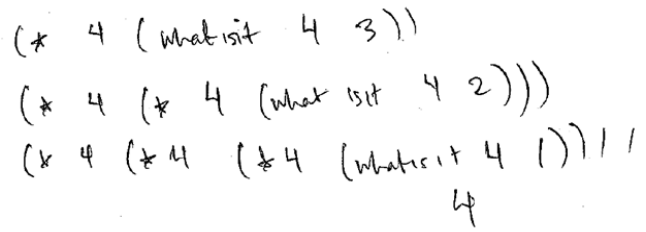 (* 4 (whatisit 4 3))
(* 4 (* 4 (what isit 4 2)))
(* 4 (* 4 (* 4 (whatisit 4 1))))
4